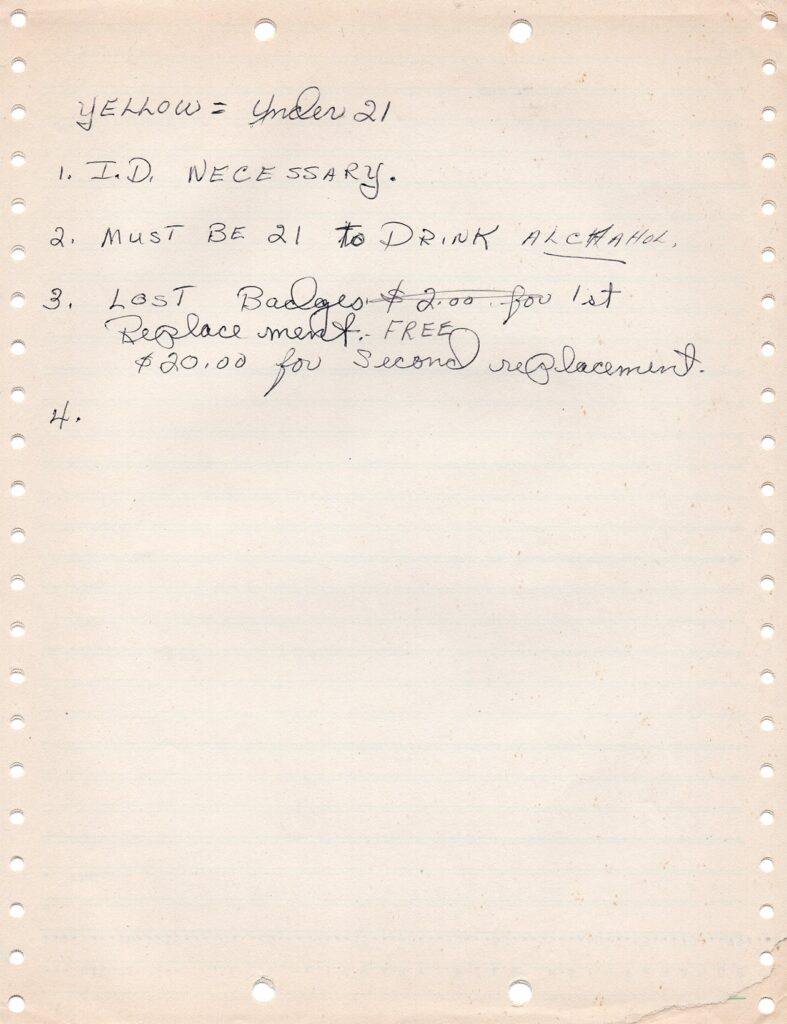 YELLOW = Under 21
1. I.D. NECESSARY.
2. MUST BE 21 to DRINK ALCHAHOL.
3. LOST Badges $2.00 for 1st
Replacement. - FREE
$20.00 for Second replacement.
4.